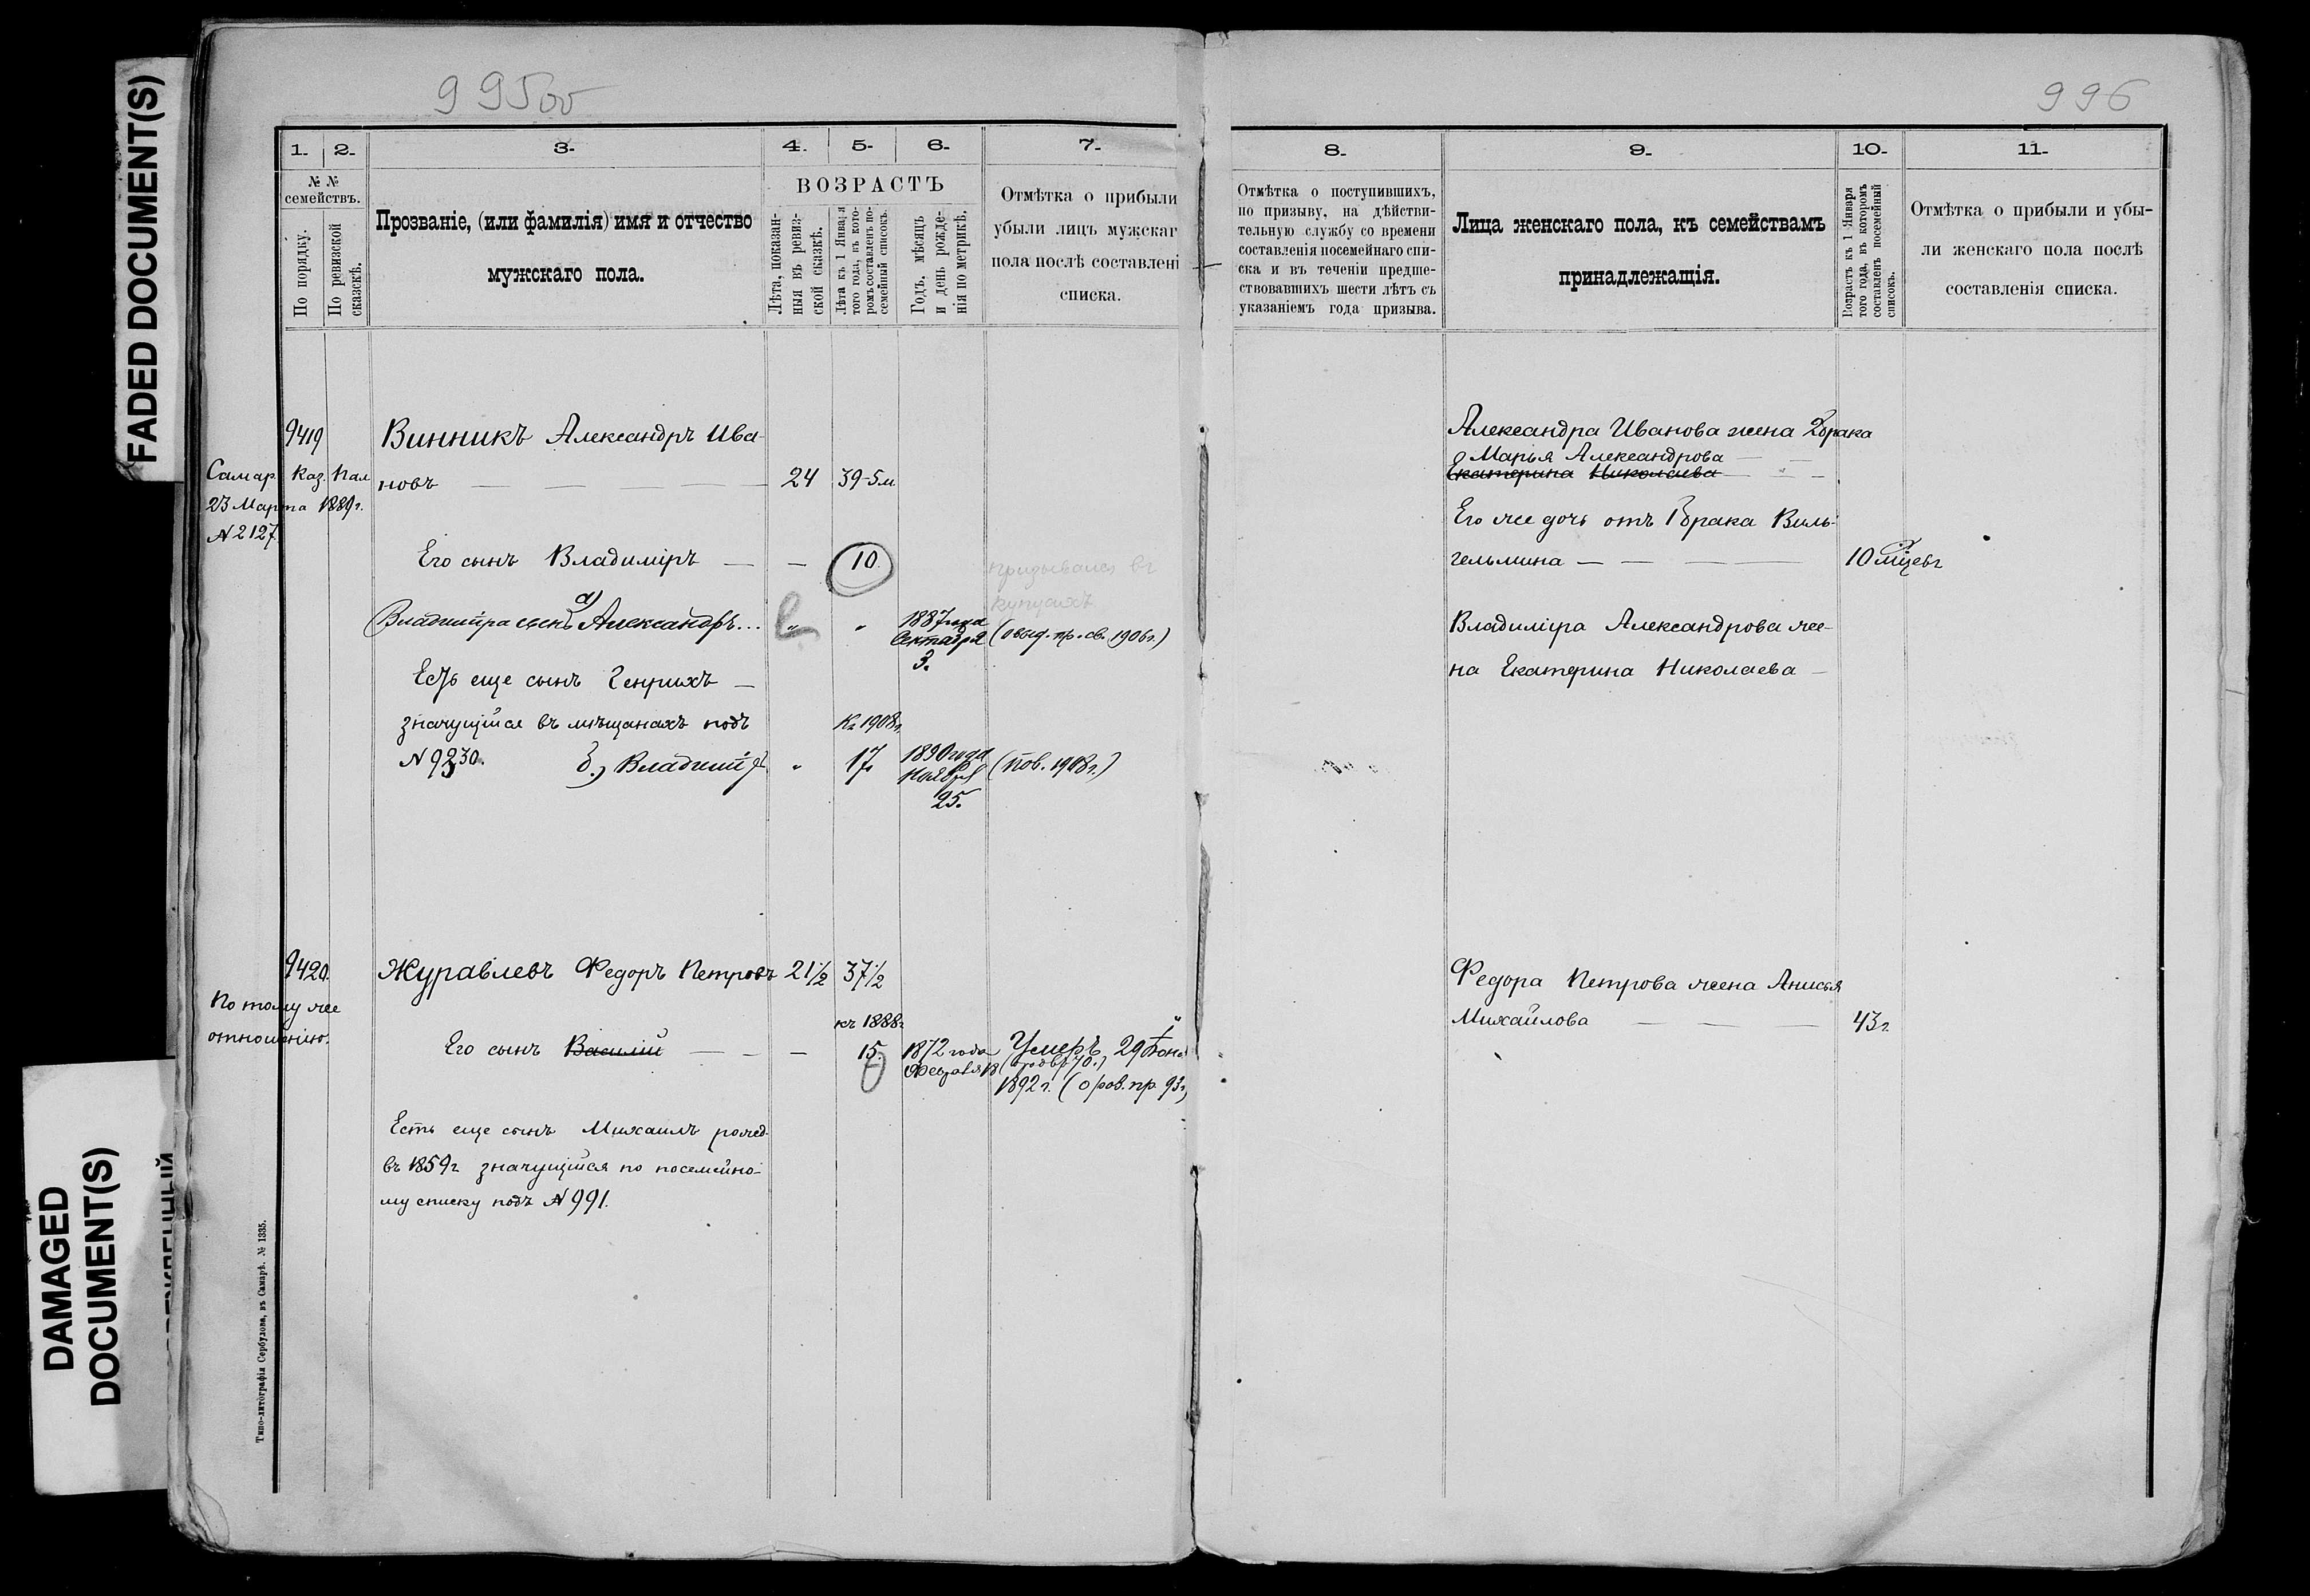 FADED DOCUMENT(S)
DAMAGED
DOCUMENT(S)
995об
1. 2. 3. 4. 5. 6. 7.
№ №
семействъ.
По порядку.
По ревизской
сказкѣ.
Прозваніе, (или фамилія) имя и отчество
мужскаго пола.
ВОЗРАСТЪ
Лѣта, показан-
ныя въ ревиз-
ской сказкѣ.
Лѣта къ 1 Января
того года, въ кото-
ромъ составленъ по-
семейный списокъ.
Годъ, мѣсяцъ
и день рожде-
нія по метрикѣ.
Отмѣтка о прибыли
убыли лицъ мужскаг
пола послѣ составлені
списка.
9419
Самар. Каз. Пал
23 Марта 1889г.
№ 2127
Винникъ Александръ Ива-
новъ — 24 39-5м
Его сынъ Владиміръ — — 10.
призывался въ
Владиміра сынъ а) Александръ... " " 1887 года
Сентября
3.
(овыд. пр. св. 1906г.)
Есть еще сынъ Генрихъ —
значущійся въ мѣщанахъ подъ
№ 9230. б) Владимір " 17
Къ 1908г.
1890 года
Ноября
25.
(пов. 1908г.)
9420.
По тому же
отношенію.
Журавлевъ Федоръ Петровъ 21½ 37½
къ 1888г
Его сынъ Василій — — — 15. 1872 года
Февраля 18
Умеръ 29 Юня
1892 г. (о ров. пр. 93г)
Есть еще сынъ Михаилъ рожд.
въ 1859г значущійся по посемейно-
му списку подъ № 991.
Типо-литографія Сербулова, въ Самарѣ. № 1335.
996
8. 9. 10. 11.
Отмѣтка о поступившихъ,
по призыву, на дѣйстви-
тельную службу со времени
составленія посемейнаго спи-
ска и въ теченіи предше-
ствовавшихъ шести лѣтъ съ
указаніемъ года призыва.
Лица женскаго пола, къ семействамъ
принадлежащія.
Возрастъ къ 1 Января
того года, въ которомъ
составленъ посемейный
списокъ.
Отмѣтка о прибыли и убы-
ли женскаго пола послѣ
составленія списка.
Александра Иванова жена 2 брака
Марья Александрова — —
Екатерина Николаева — " —
Его же дочь отъ 1 брака Виль-
гельмина — — — 10 мѣсев
Владиміра Александрова же-
на Екатерина Николаева —
Федора Петрова жена Анисья
Михайлова — — — 43г.